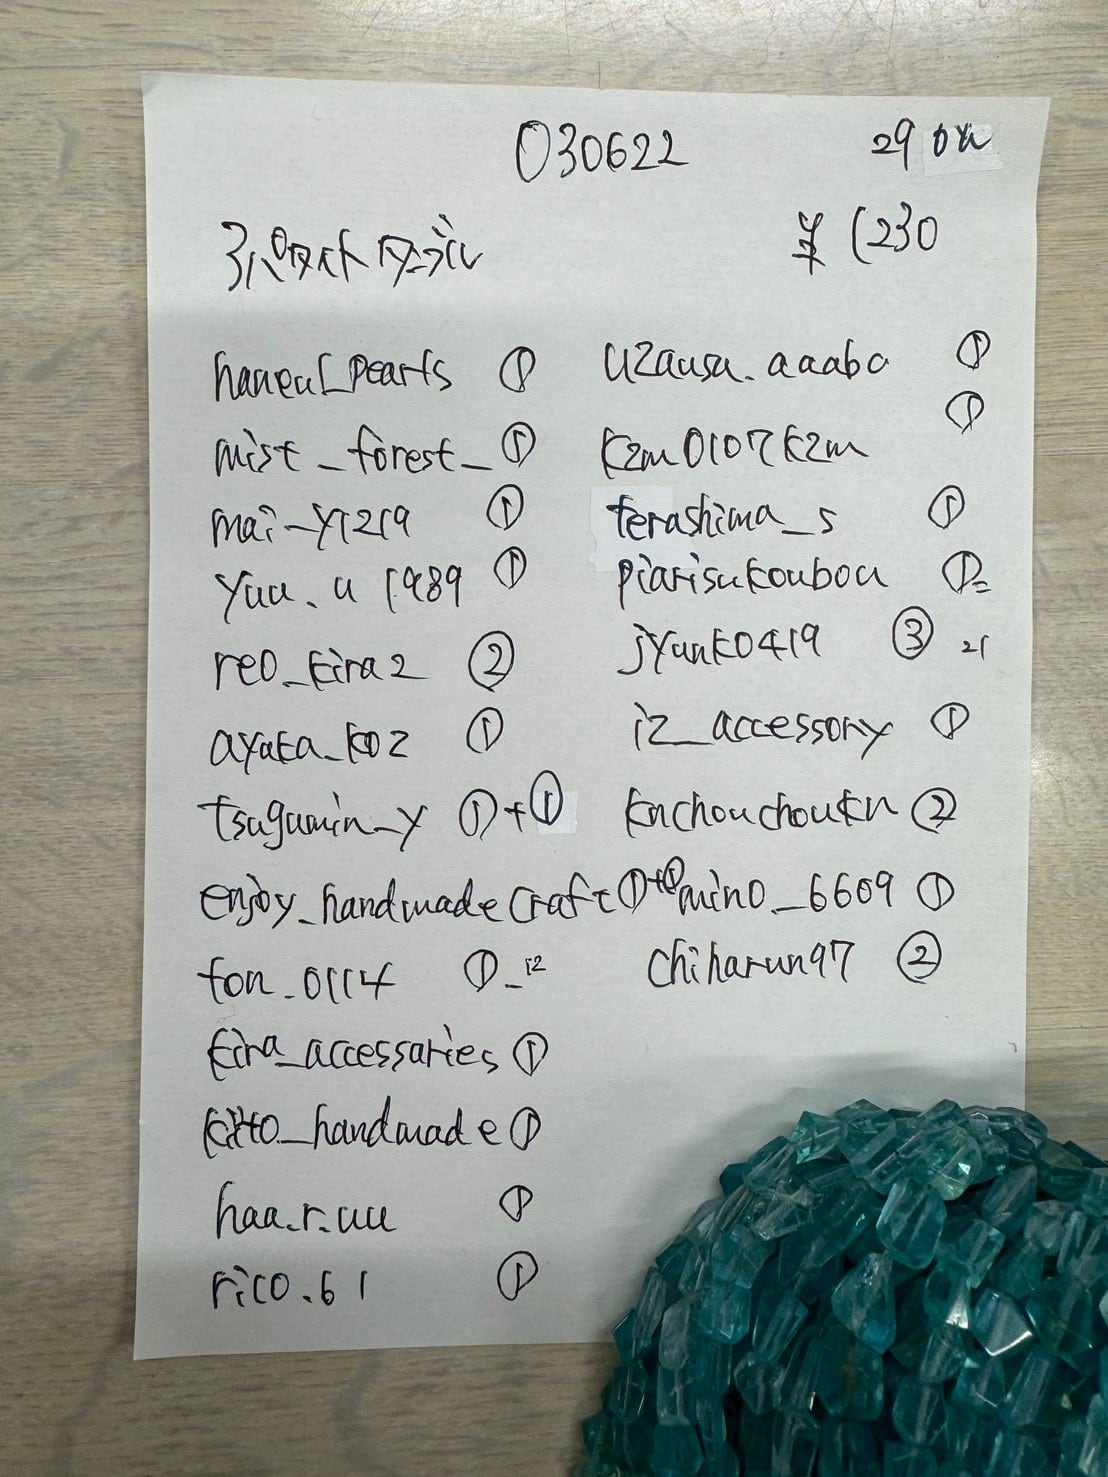 030622
29
¥ 1230
haneul_pearls ①
mist_forest_ ①
mai_y1219 ①
yuu.u1989 ①
reo_kira2 ②
ayaka_koz ①
tsugumin_y ①+①
enjoy_handmadecraft ①+①
ton_0114 ①_12
kira_accessaries ①
kito_handmade ①
haa.r.uu ①
rico.61 ①
uzausu.aaabo ①
kzm0107kzm ①
terashima_s ①
piarisukoubou ①=
jyunko419 ③ 21
iz_accessory ①
knchouchoukn ②
mino._6609 ①
chiharun97 ②